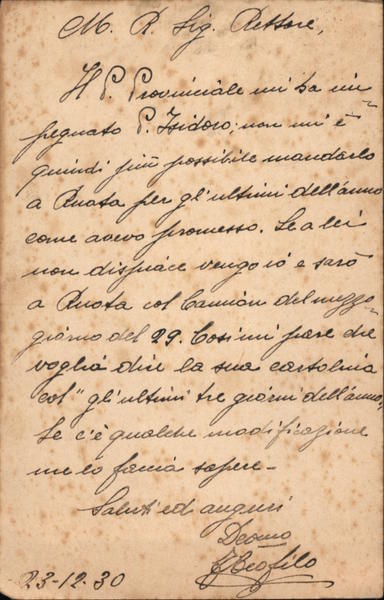 M. R. Sig. Rettore,
Il P. Provinciale mi ha im-
pegnato P. Isidoro; non mi è
quindi più possibile mandarlo
a Ruota per gl'ultimi dell'anno
come avevo promesso. Se a lei
non dispiace vengo io e sarò
a Ruota col Camion del mezzo-
giorno del 29. Così mi pare che
voglia dire la sua cartolina
col "gl'ultimi tre giorni dell'anno,
Se c'è qualche modificazione
me lo faccia sapere -
Saluti ed auguri
Dev.mo
P. Teofilo
23-12-30